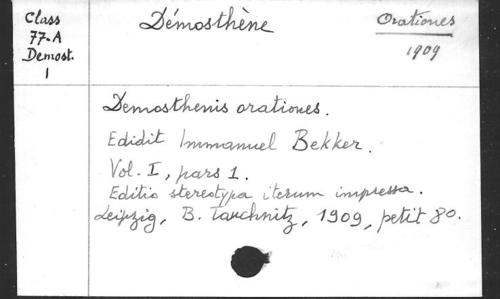 Class
77-A
Demost.
1
Démosthène
Orationes
1909
Demosthenis orationes.
Edidit Immanuel Bekker.
Vol. I, pars 1.
Editio stereotypa iterum impressa.
Leipzig, B. Tauchnitz, 1909, petit 8o.